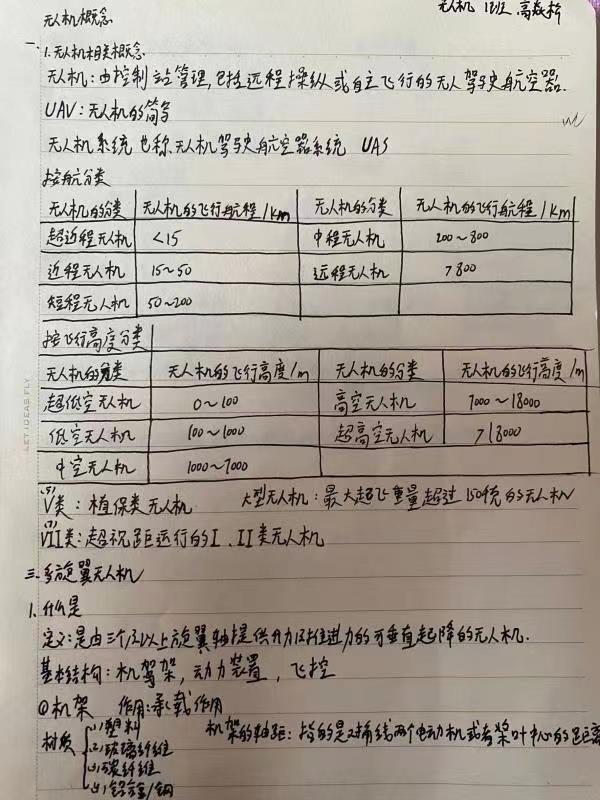 无人机 1班 高焱桥
无人机概念
一、
1.无人机相关概念
无人机:由控制站管理,包括远程操纵或自主飞行的无人驾驶航空器.
UAV:无人机的简写
无人机系统 也称无人机驾驶航空器系统 UAS
按航分类
无人机的分类 无人机的飞行航程/km 无人机的分类 无人机的飞行航程/km
超近程无人机 <15 中程无人机 200~800
近程无人机 15~50 远程无人机 >800
短程无人机 50~200
按飞行高度分类
无人机的分类 无人机的飞行高度/m 无人机的分类 无人机的飞行高度/m
超低空无人机 0~100 高空无人机 7000~18000
低空无人机 100~1000 超高空无人机 >18000
中空无人机 1000~7000
(5)
V类:植保类无人机 大型无人机:最大起飞重量超过150千克的无人机
(7)
VII类:超视距运行的I、II类无人机
LET IDEAS FLY
三.多旋翼无人机
1.什么是
定义:是由三个及以上旋翼轴提供升力和推进力的可垂直起降的无人机.
基本结构:机驾架,动力装置,飞控
①机架 作用:承载作用
材质 (1)塑料 机架的轴距:指的是对角线两个电动机或者桨叶中心的距离
(2)玻璃纤维
(3)碳纤维
(4)铝合金/钢